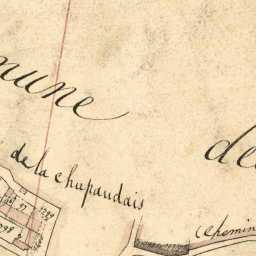 mune
de
de la chapaudais
Chemin